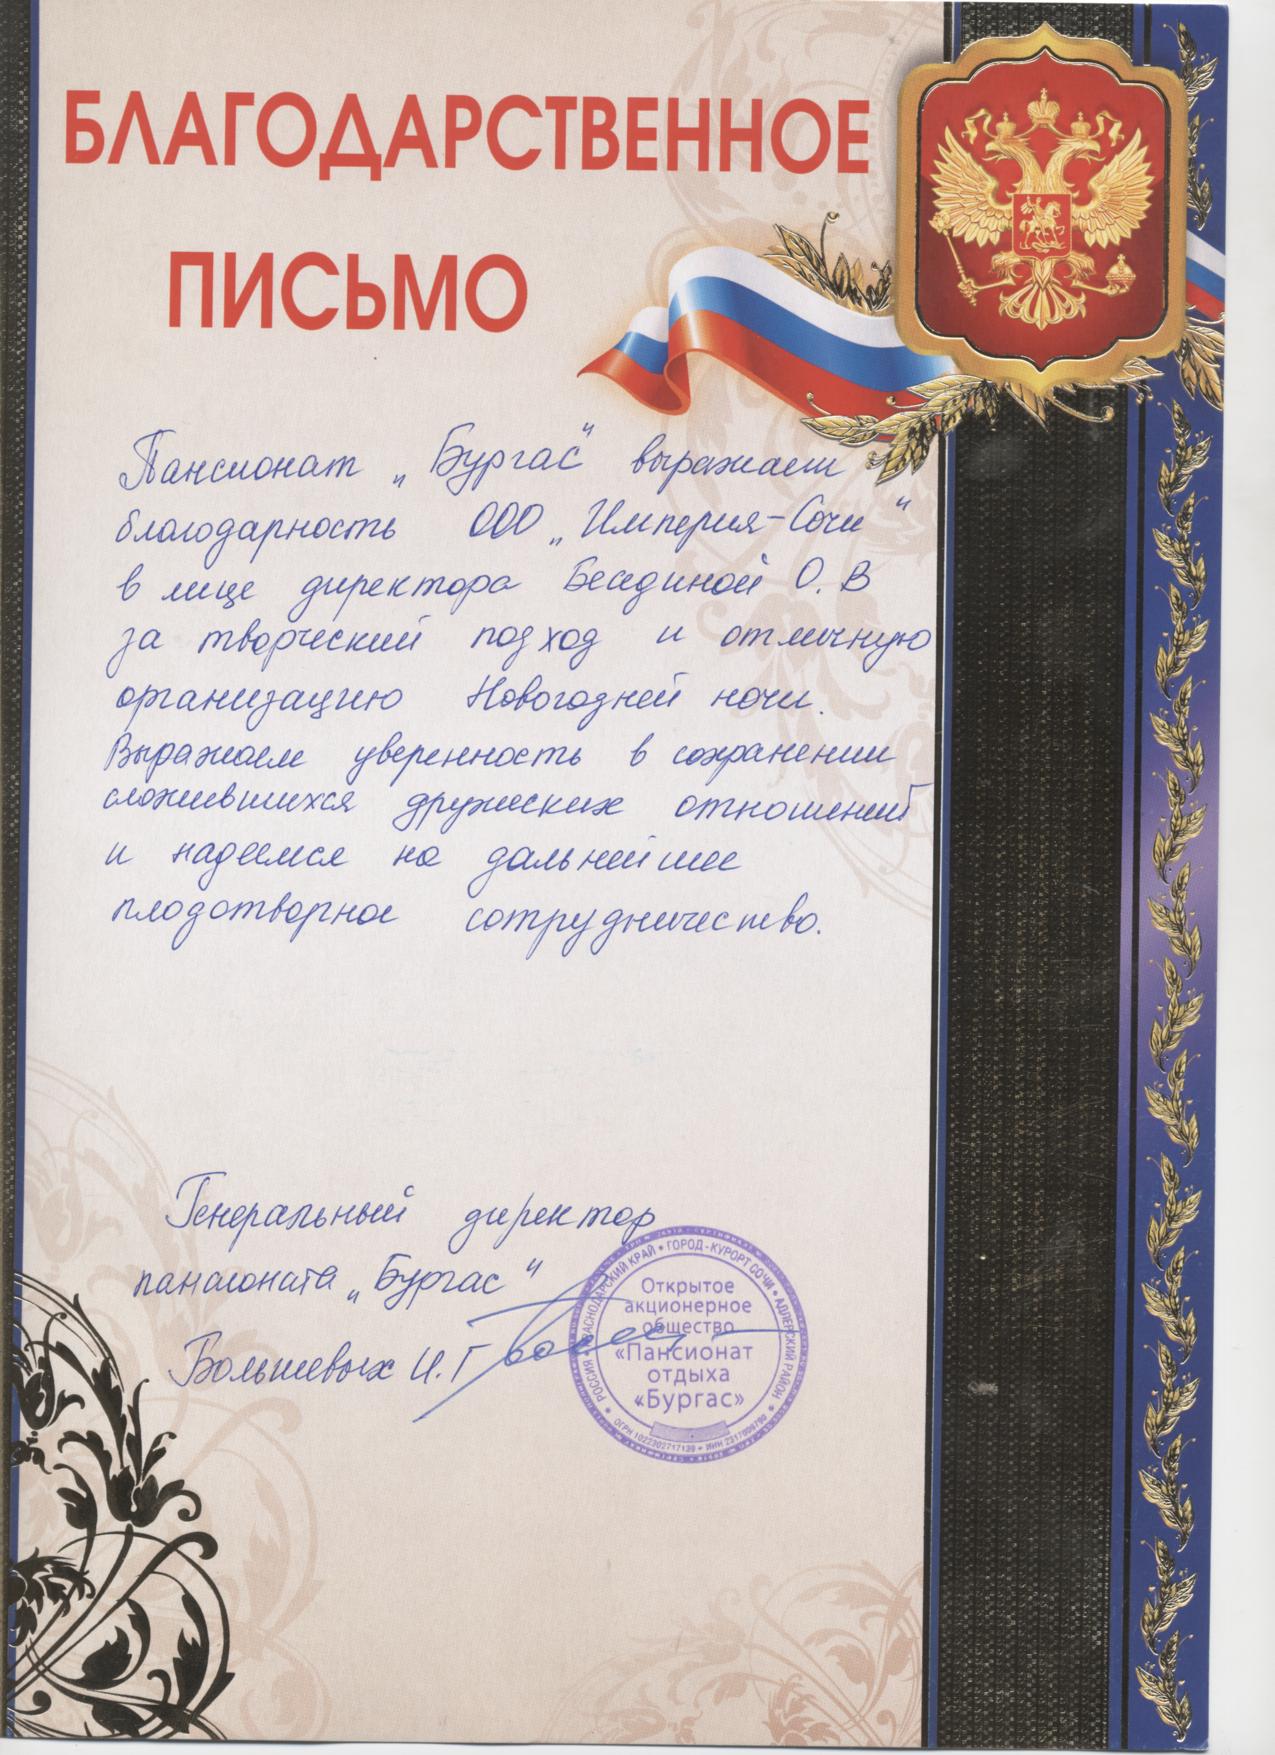 БЛАГОДАРСТВЕННОЕ
ПИСЬМО
Пансионат „Бургас" выражает
благодарность ООО „Империя-Сочи"
в лице директора Бесединой О. В
за творческий подход и отличную
организацию Новогодней ночи.
Выражаем уверенность в сохранении
сложившихся дружеских отношений
и надеемся на дальнейшее
плодотворное сотрудничество.
Генеральный директор
пансионата „Бургас"
Большевых И. Г
РОССИЯ • КРАСНОДАРСКИЙ КРАЙ • ГОРОД-КУРОРТ СОЧИ • АДЛЕРСКИЙ РАЙОН
Открытое
акционерное
общество
«Пансионат
отдыха
«Бургас»
ОГРН 1022302717139 • ИНН